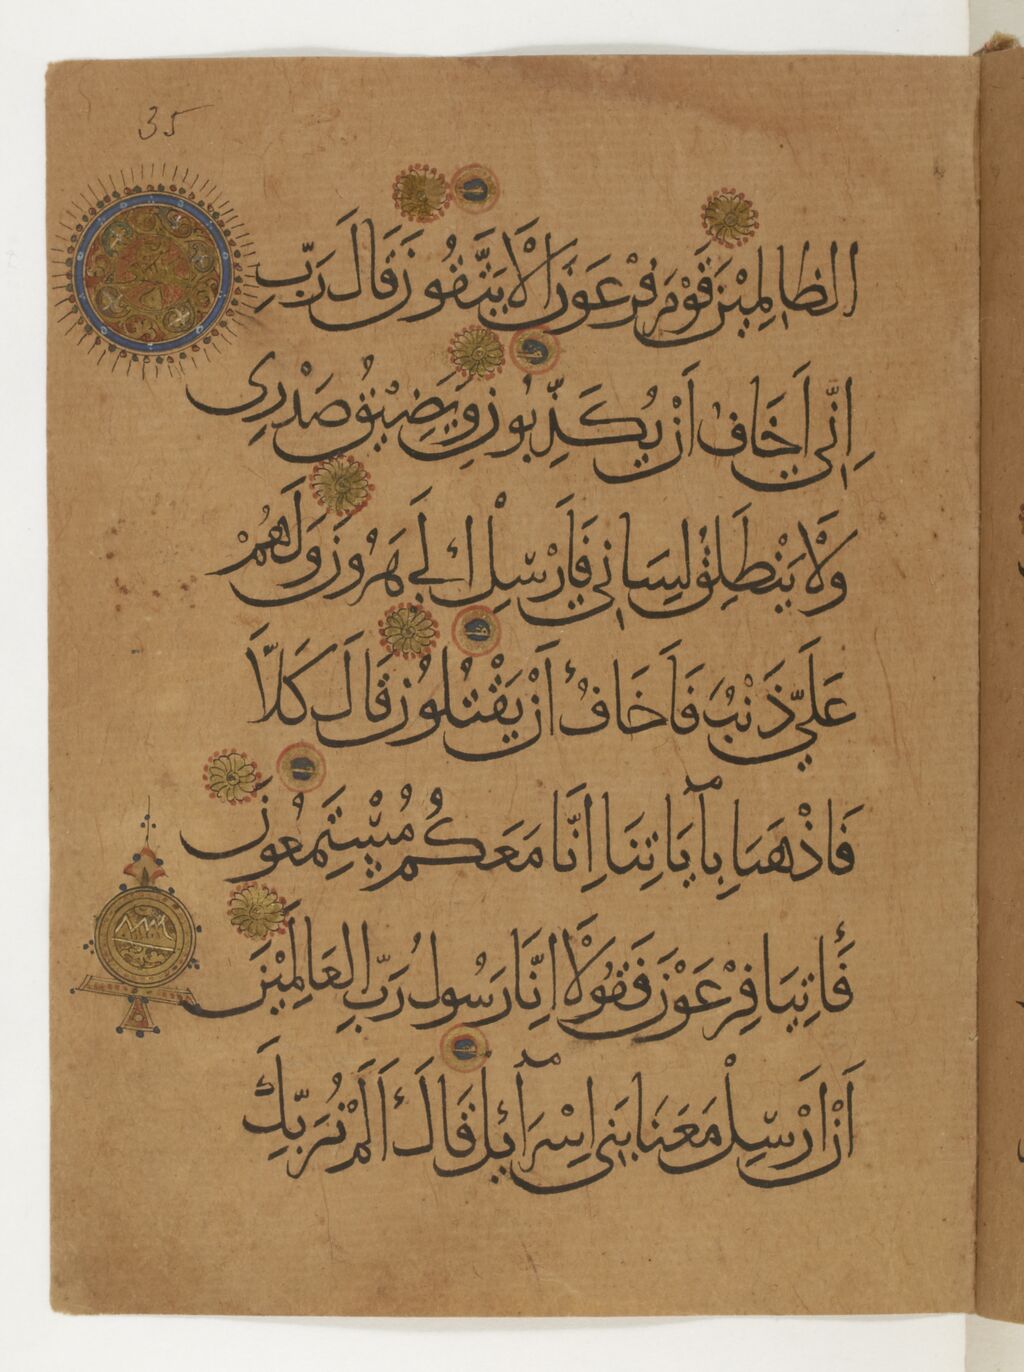 35
الظَّالِمِيْنَ قَوْمَ فِرْعَوْنَ اَلَا يَتَّقُونَ قَالَ رَبِّ
اِنِّى اَخَافُ اَنْ يُكَذِّبُونِ وَيَضِيْقُ صَدْرِى
وَلَا يَنْطَلِقُ لِسَانِي فَاَرْسِلْ اِلَى هَرُونَ وَلَهُمْ
عَلَيَّ ذَنْبٌ فَاَخَافُ اَنْ يَقْتُلُونِ قَالَ كَلَّا
فَاذْهَبَا بِآيَاتِنَا اِنَّا مَعَكُمْ مُسْتَمِعُونَ
فَأْتِيَا فِرْعَوْنَ فَقُوْلَا اِنَّا رَسُولُ رَبِّ العَالَمِيْنَ
اَنْ اَرْسِلْ مَعَنَا بَنِى اِسْرَآئِلَ قَالَ اَلَمْ نُرَبِّكَ